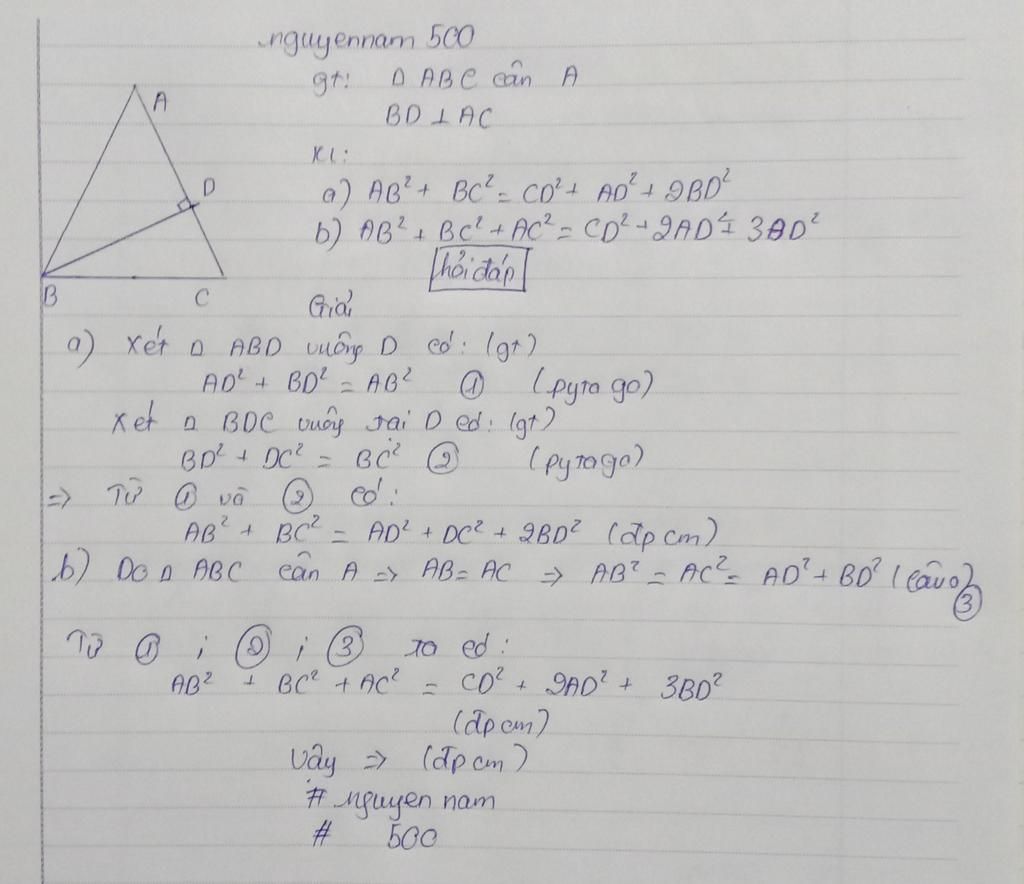 nguyennam 500
gt: Δ ABC cân A
BD ⊥ AC
KL:
a) AB² + BC² = CD² + AD² + 2BD²
b) AB² + BC² + AC² = CD² + 2AD² + 3BD²
hỏi đáp
A
D
B
C
Giải
a) Xét Δ ABD vuông D có: (gt)
AD² + BD² = AB² ① (pytago)
Xét Δ BDC vuông tại D có: (gt)
BD² + DC² = BC² ② (pytago)
=> Từ ① và ② có:
AB² + BC² = AD² + DC² + 2BD² (đpcm)
b) Do Δ ABC cân A => AB = AC => AB² = AC² = AD² + BD² (câu a) ③
Từ ① ; ② ; ③ ta có:
AB² + BC² + AC² = CD² + 2AD² + 3BD²
(đpcm)
Vậy => (đpcm)
# nguyen nam
# 500